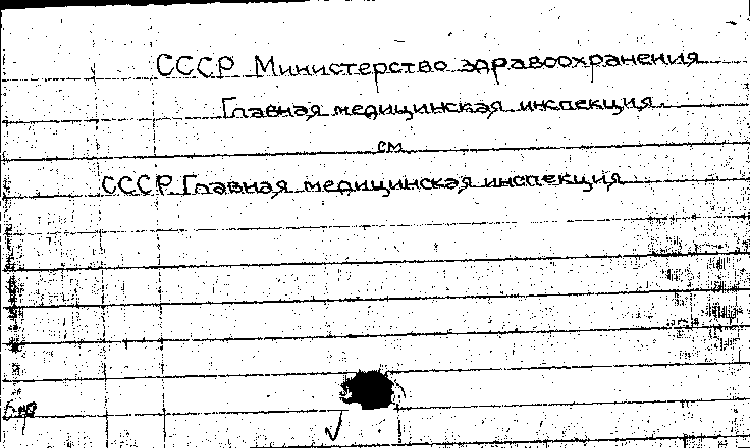 СССР Министерство здравоохранения
Главная медицинская инспекция
см.
СССР. Главная медицинская инспекция